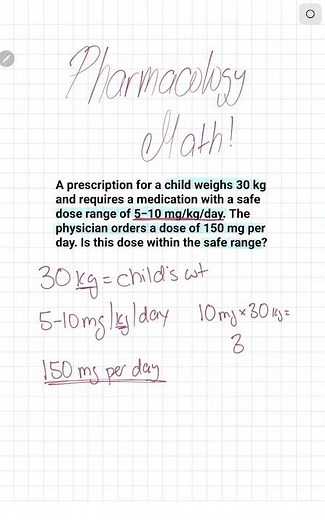 Pharmacology
Math!
A prescription for a child weighs 30 kg
and requires a medication with a safe
dose range of 5-10 mg/kg/day. The
physician orders a dose of 150 mg per
day. Is this dose within the safe range?
30 kg = child's wt
5-10mg/kg/day
10mg x 30kg =
3
150 mg per day